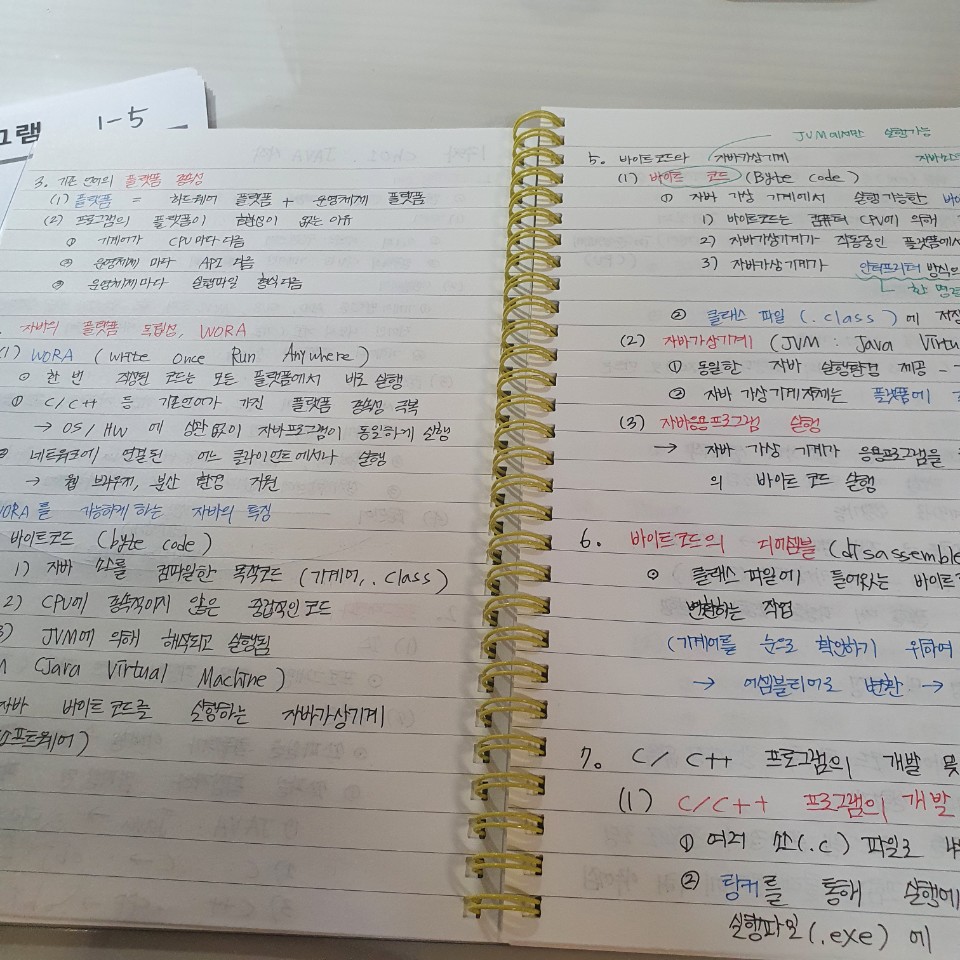 그램
1-5
3. 기존 언어의 플랫폼 종속성
(1) 플랫폼 = 하드웨어 플랫폼 + 운영체제 플랫폼
(2) 프로그램의 플랫폼이 호환성이 없는 이유
① 기계어가 CPU마다 다름
② 운영체제 마다 API 다름
③ 운영체제마다 실행파일 형식 다름
. 자바의 플랫폼 독립성, WORA
(1) WORA (Write Once Run Anywhere)
한 번 작성된 코드는 모든 플랫폼에서 바로 실행
① C/C++ 등 기존언어가 가진 플랫폼 종속성 극복
→ OS/HW 에 상관없이 자바프로그램이 동일하게 실행
네트워크에 연결된 어느 클라이언트에서나 실행
→ 웹 브라우저, 분산 환경 지원
WORA를 가능하게 하는 자바의 특징
바이트코드 (byte code)
1) 자바 소스를 컴파일한 목적코드 (기계어, .class)
2) CPU에 종속적이지 않은 중립적인 코드
3) JVM에 의해 해석되고 실행됨
M (Java Virtual Machine)
자바 바이트코드를 실행하는 자바가상기계
소프트웨어)
JVM에서만 실행가능
5. 바이트코드와 자바가상기계
(1) 바이트 코드 (Byte code)
① 자바 가상 기계에서 실행가능한
1) 바이트코드는 컴퓨터 CPU에 의해
2) 자바가상기계가 작동중인 플랫폼에서
3) 자바가상기계가 인터프리터 방식으
한 명
② 클래스 파일 (.class) 에 저
(2) 자바가상기계 (JVM : Java Virtu
① 동일한 자바 실행환경 제공
② 자바 가상 기계자체는 플랫폼에
(3) 자바응용프로그램 실행
→ 자바 가상 기계가 응용프로그램을
의 바이트 코드 실행
6. 바이트코드의 디어셈블 (disassemble
클래스 파일에 들어있는 바이트
변환하는 작업
(기계어를 눈으로 확인하기 위하여
→ 어셈블리어로 변환 →
7. C / C++ 프로그램의 개발 및
(1) C/C++ 프로그램의 개발
① 여러 소스(.c) 파일로 나
② 링커를 통해 실행에
실행파일 (.exe) 에